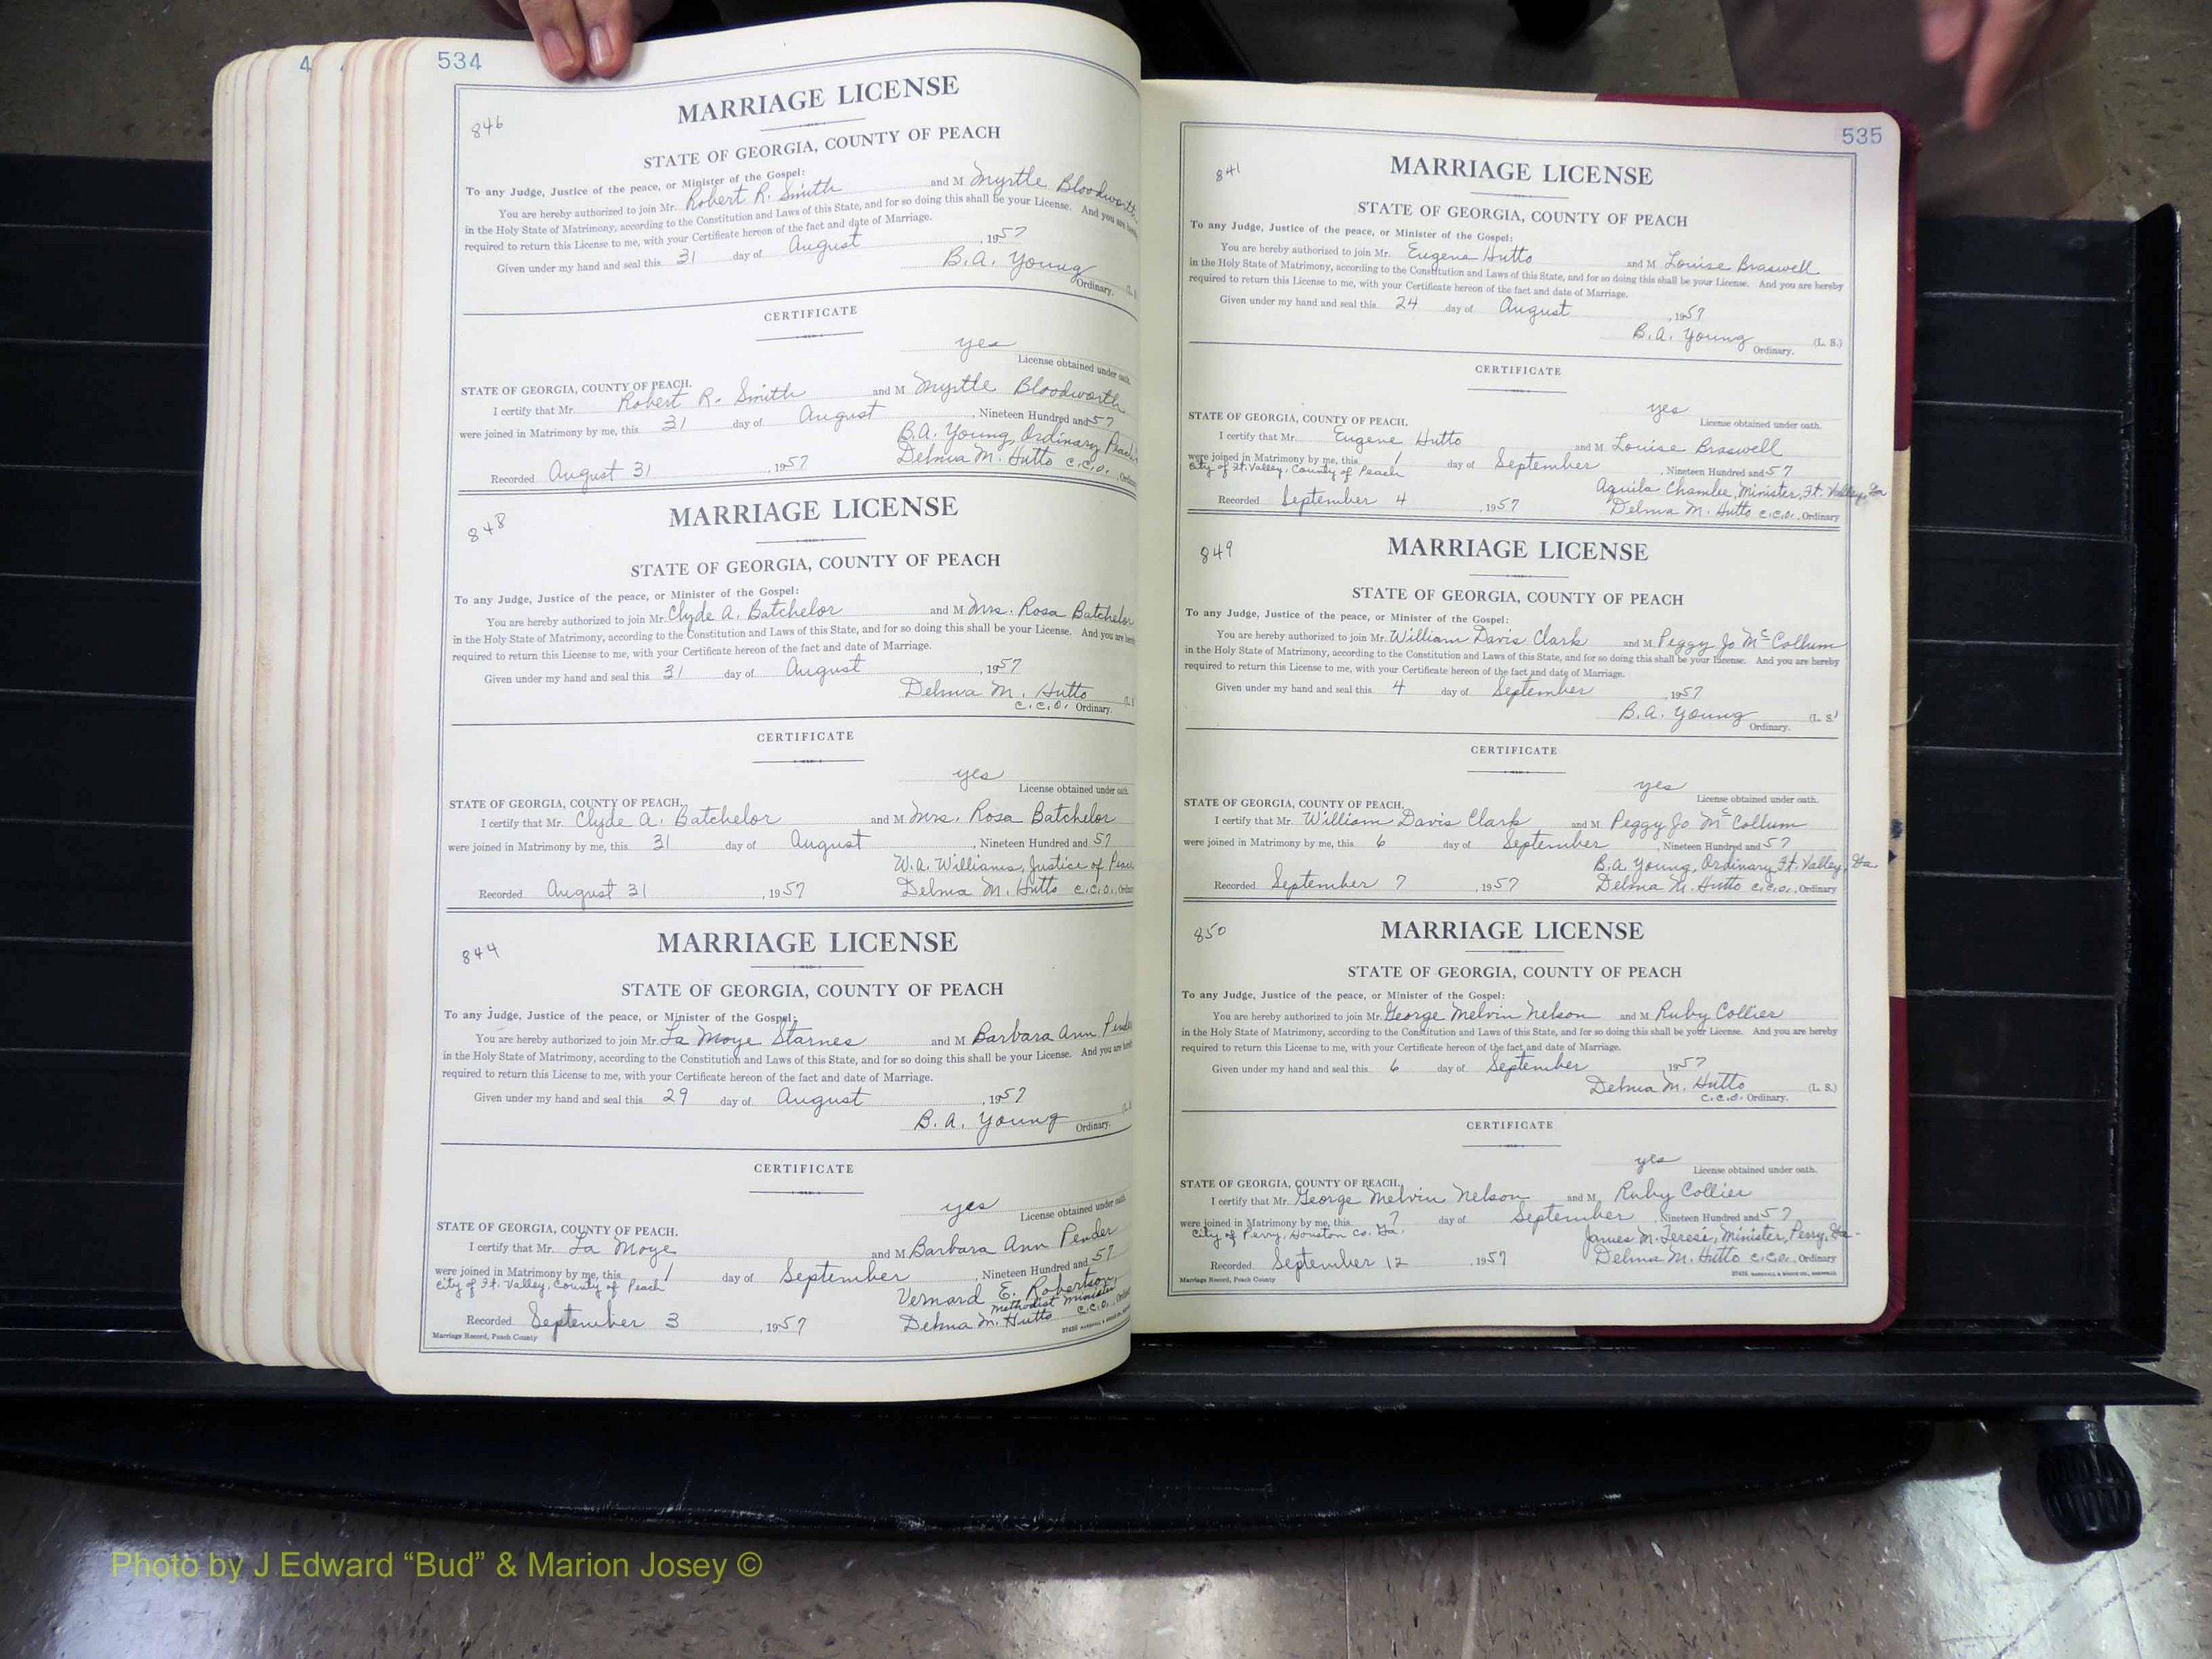 4
534
846
MARRIAGE LICENSE
STATE OF GEORGIA, COUNTY OF PEACH
To any Judge, Justice of the peace, or Minister of the Gospel:
You are hereby authorized to join Mr. Robert R. Smith and M Myrtle Bloodworth
in the Holy State of Matrimony, according to the Constitution and Laws of this State, and for so doing this shall be your License. And you are hereby
required to return this License to me, with your Certificate hereon of the fact and date of Marriage.
Given under my hand and seal this 31 day of August, 1957
B.A. Young
Ordinary.
CERTIFICATE
yes
License obtained under oath.
STATE OF GEORGIA, COUNTY OF PEACH.
I certify that Mr. Robert R. Smith and M Myrtle Bloodworth
were joined in Matrimony by me, this 31 day of August, Nineteen Hundred and 57
B.A. Young, Ordinary, Peach
Recorded August 31, 1957 Delma M. Hutto c.c.o.
848
MARRIAGE LICENSE
STATE OF GEORGIA, COUNTY OF PEACH
To any Judge, Justice of the peace, or Minister of the Gospel:
You are hereby authorized to join Mr. Clyde A. Batchelor and M Mrs. Rosa Batchelor
in the Holy State of Matrimony, according to the Constitution and Laws of this State, and for so doing this shall be your License. And you are
required to return this License to me, with your Certificate hereon of the fact and date of Marriage.
Given under my hand and seal this 31 day of August, 1957
Delma M. Hutto
c.c.o. Ordinary.
CERTIFICATE
yes
License obtained under oath.
STATE OF GEORGIA, COUNTY OF PEACH.
I certify that Mr. Clyde A. Batchelor and M Mrs. Rosa Batchelor
were joined in Matrimony by me, this 31 day of August, Nineteen Hundred and 57
W.A. Williams, Justice of
Recorded August 31, 1957 Delma M. Hutto c.c.o.
844
MARRIAGE LICENSE
STATE OF GEORGIA, COUNTY OF PEACH
To any Judge, Justice of the peace, or Minister of the Gospel:
You are hereby authorized to join Mr. La Moye Starnes and M Barbara Ann Pender
in the Holy State of Matrimony, according to the Constitution and Laws of this State, and for so doing this shall be your License. And you are
required to return this License to me, with your Certificate hereon of the fact and date of Marriage.
Given under my hand and seal this 29 day of August, 1957
B. A. Young
Ordinary.
CERTIFICATE
yes
License obtained under oath.
STATE OF GEORGIA, COUNTY OF PEACH.
I certify that Mr. La Moye and M Barbara Ann Pender
were joined in Matrimony by me, this 1 day of September, Nineteen Hundred and 57
city of Ft. Valley, County of Peach Vernard E. Robertson,
Methodist Minister
Recorded September 3, 1957 Delma M. Hutto c.c.o.
Marriage Record, Peach County
535
841
MARRIAGE LICENSE
STATE OF GEORGIA, COUNTY OF PEACH
To any Judge, Justice of the peace, or Minister of the Gospel:
You are hereby authorized to join Mr. Eugene Hutto and M Louise Braswell
in the Holy State of Matrimony, according to the Constitution and Laws of this State, and for so doing this shall be your License. And you are hereby
required to return this License to me, with your Certificate hereon of the fact and date of Marriage.
Given under my hand and seal this 24 day of August, 1957
B.A. Young (L. S.)
Ordinary.
CERTIFICATE
yes
License obtained under oath.
STATE OF GEORGIA, COUNTY OF PEACH.
I certify that Mr. Eugene Hutto and M Louise Braswell
were joined in Matrimony by me, this 1 day of September, Nineteen Hundred and 57
City of Ft. Valley, County of Peach Aquila Chamlee, Minister, Ft. Valley, Ga
Recorded September 4, 1957 Delma M. Hutto c.c.o., Ordinary
849
MARRIAGE LICENSE
STATE OF GEORGIA, COUNTY OF PEACH
To any Judge, Justice of the peace, or Minister of the Gospel:
You are hereby authorized to join Mr. William Davis Clark and M Peggy Jo McCollum
in the Holy State of Matrimony, according to the Constitution and Laws of this State, and for so doing this shall be your License. And you are hereby
required to return this License to me, with your Certificate hereon of the fact and date of Marriage.
Given under my hand and seal this 4 day of September, 1957
B.A. Young (L. S.)
Ordinary.
CERTIFICATE
yes
License obtained under oath.
STATE OF GEORGIA, COUNTY OF PEACH.
I certify that Mr. William Davis Clark and M Peggy Jo McCollum
were joined in Matrimony by me, this 6 day of September, Nineteen Hundred and 57
B.A. Young, Ordinary, Ft. Valley, Ga
Recorded September 7, 1957 Delma M. Hutto c.c.o., Ordinary
850
MARRIAGE LICENSE
STATE OF GEORGIA, COUNTY OF PEACH
To any Judge, Justice of the peace, or Minister of the Gospel:
You are hereby authorized to join Mr. George Melvin Nelson and M Ruby Collier
in the Holy State of Matrimony, according to the Constitution and Laws of this State, and for so doing this shall be your License. And you are hereby
required to return this License to me, with your Certificate hereon of the fact and date of Marriage.
Given under my hand and seal this 6 day of September, 1957
Delma M. Hutto (L. S.)
c.c.o. Ordinary.
CERTIFICATE
yes
License obtained under oath.
STATE OF GEORGIA, COUNTY OF PEACH.
I certify that Mr. George Melvin Nelson and M Ruby Collier
were joined in Matrimony by me, this 7 day of September, Nineteen Hundred and 57
City of Perry, Houston Co. Ga. James M. Teresi, Minister, Perry, Ga.
Recorded September 12, 1957 Delma M. Hutto c.c.o., Ordinary
Marriage Record, Peach County
Photo by J Edward “Bud” & Marion Josey ©